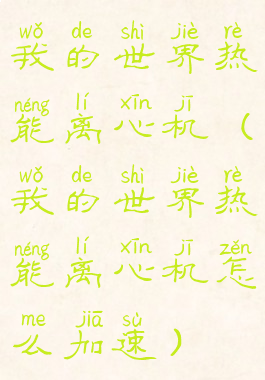 wǒ de shì jiè rè
我的世界热
néng lí xīn jī
能离心机（
wǒ de shì jiè rè
我的世界热
néng lí xīn jī zěn
能离心机怎
me jiā sù
么加速）